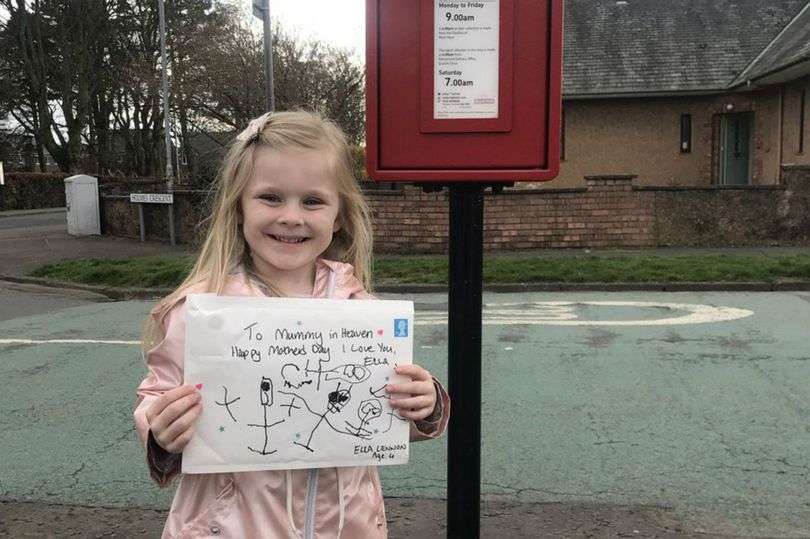 Monday to Friday
9.00am
Saturday
7.00am
HOLMES CRESCENT
To Mummy in Heaven
Happy Mothers Day I Love You,
Ella
ELLA LENNON
Age 4